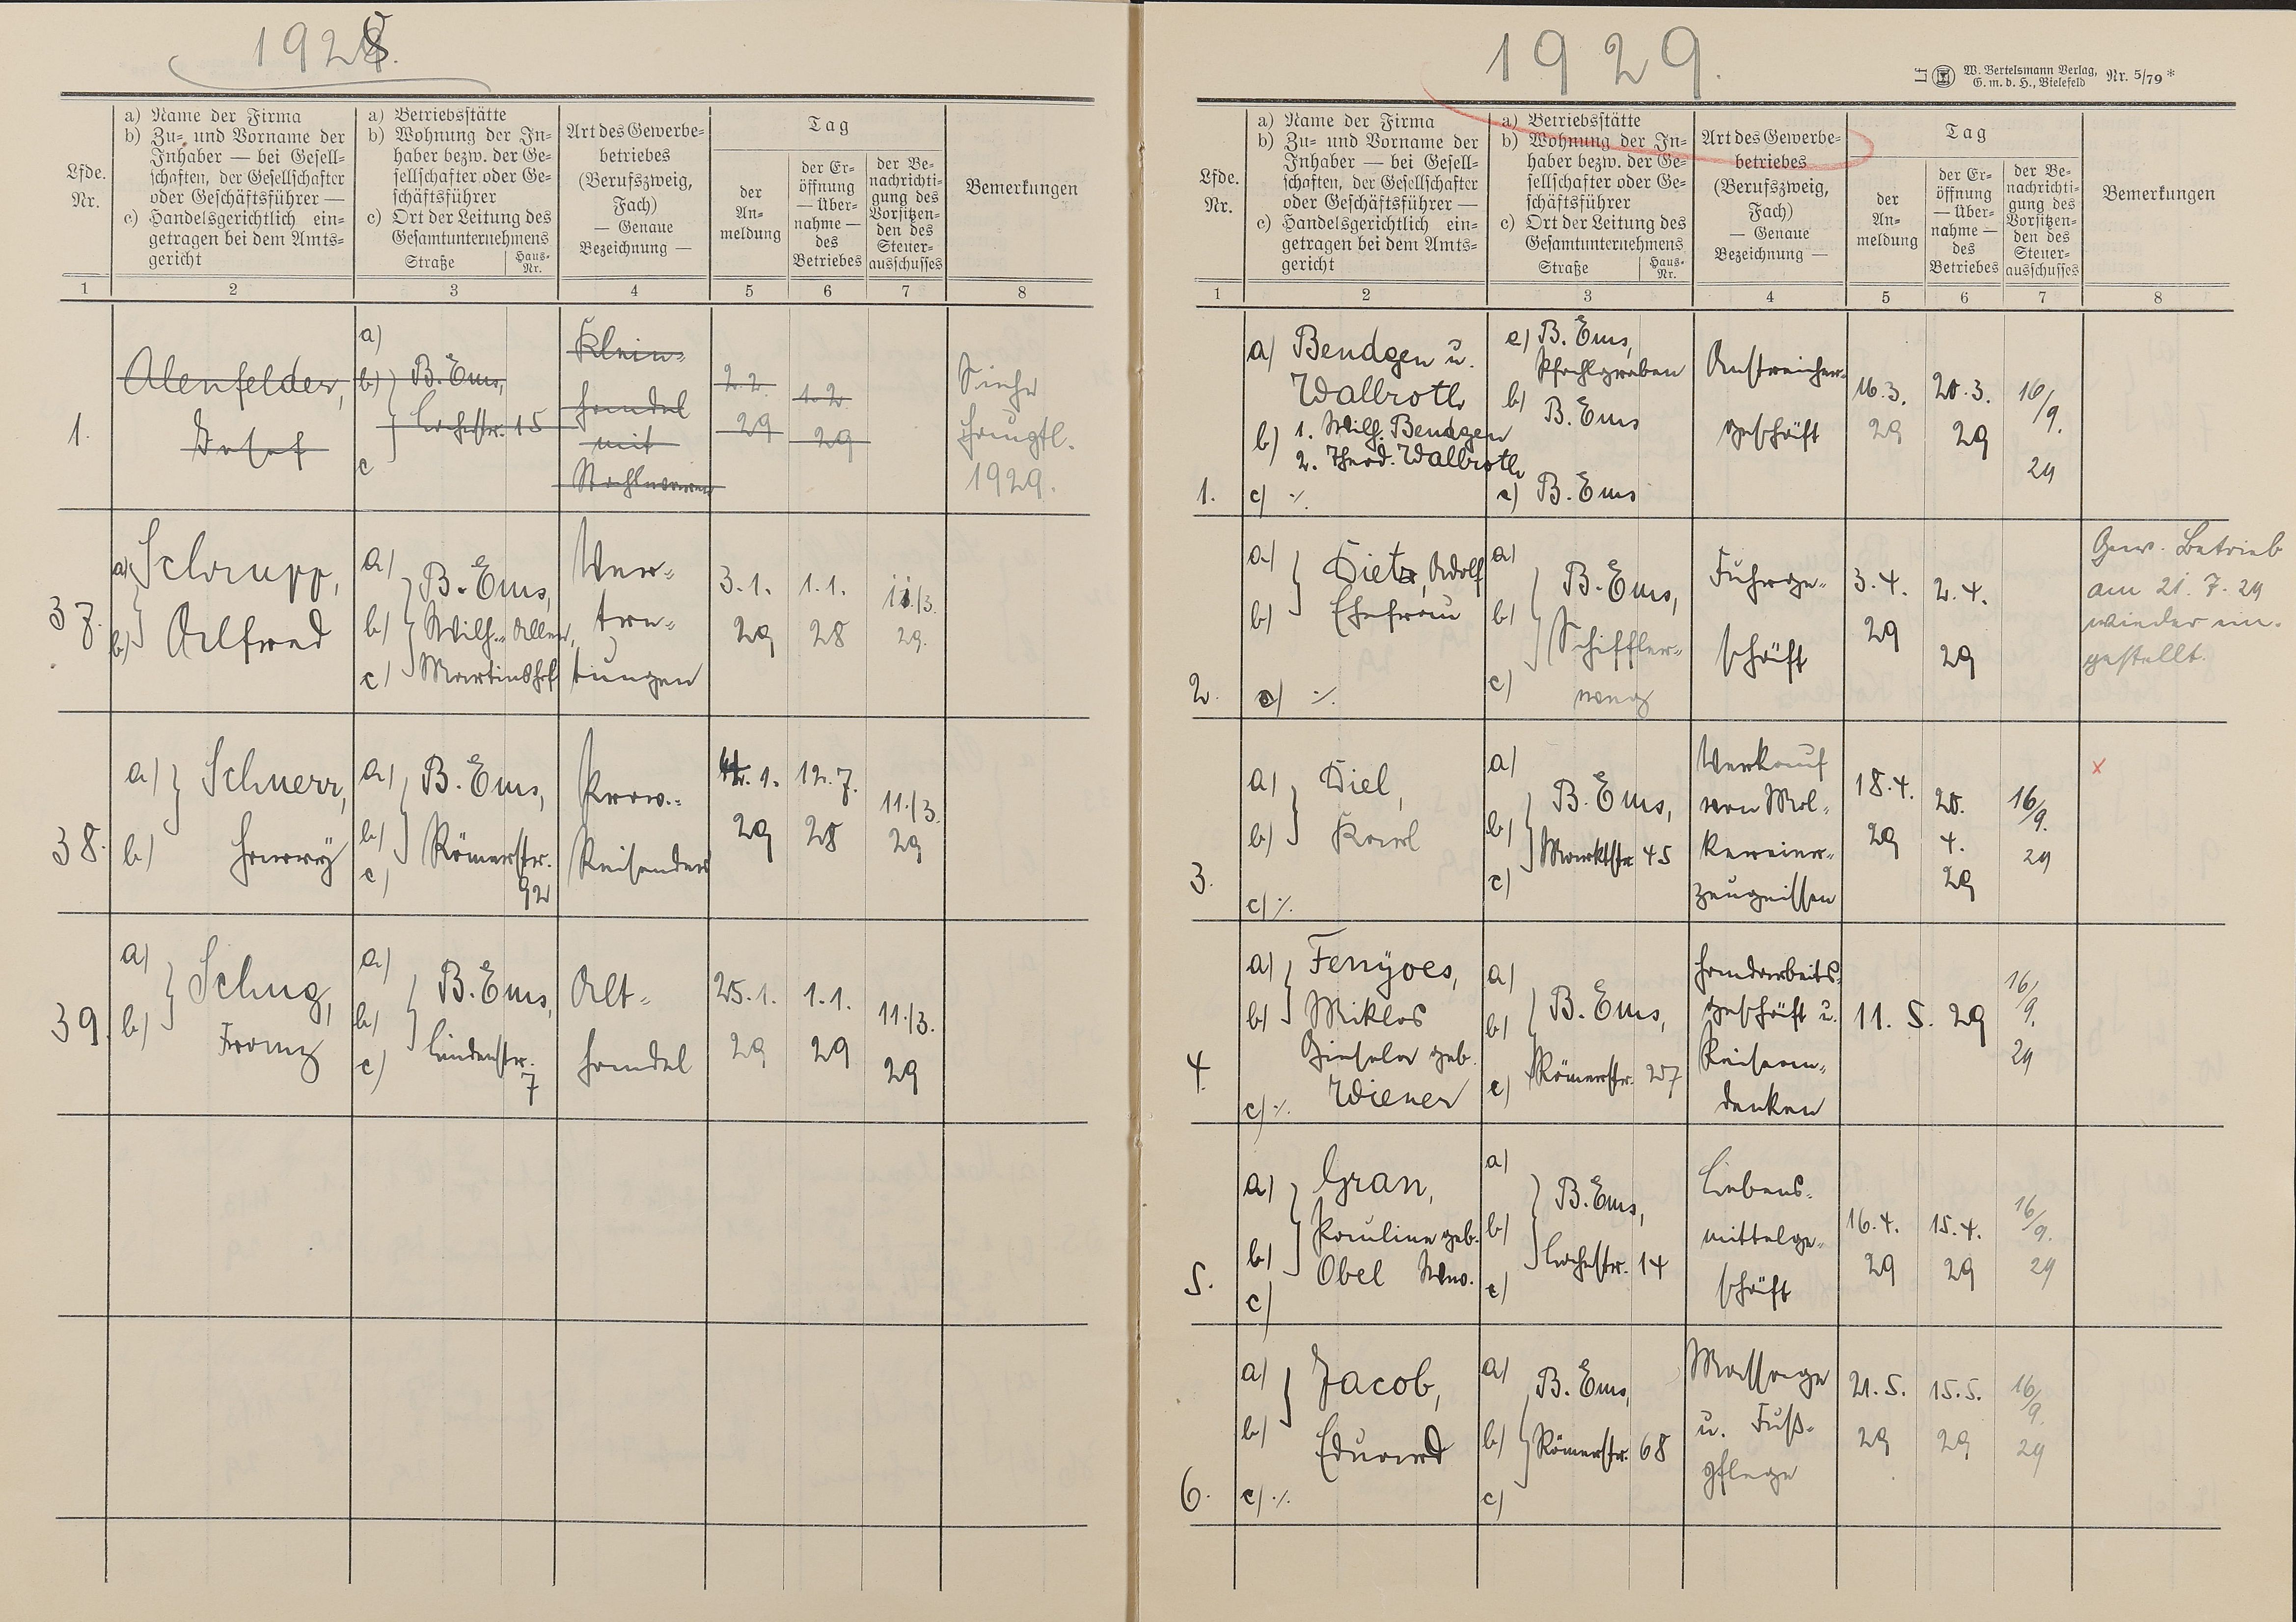 1928.
a) Name der Firma
b) Zu- und Vorname der
Inhaber — bei Gesell-
schaften, der Gesellschafter
oder Geschäftsführer —
c) Handelsgerichtlich ein-
getragen bei dem Amts-
gericht
a) Betriebsstätte
b) Wohnung der In-
haber bezw. der Ge-
sellschafter oder Ge-
schäftsführer
c) Ort der Leitung des
Gesamtunternehmens
Straße
Haus-
Nr.
Art des Gewerbe-
betriebes
(Berufszweig,
Fach)
— Genaue
Bezeichnung —
Tag
Lfde.
Nr.
der
An-
meldung
der Er-
öffnung
— Über-
nahme —
des
Betriebes
der Be-
nachrichti-
gung des
Vorsitzen-
den des
Steuer-
ausschusses
Bemerkungen
1 2 3 4 5 6 7 8
1.
Alenfelder,
Josef
a)
b) B. Ems,
Lahnstr. 15
c
Klein-
handel
mit
2.2.
29
1.2
29
Siehe
Hauptl.
1929.
37.
a) Schrupp,
b) Alfred
a)
B. Ems,
b) Wilh.-Allee,
c) Martinshof
Ver-
tre-
tungen
3.1.
29
1.1.
28
11/3.
29.
38.
a) Schnerr,
b) Harry
a) B. Ems,
b) Römerstr.
c) 92
Prov.-
Reisender
12.1.
29
12.7.
28
11./3.
29
39.
a) Schug,
b) Franz
a) B. Ems,
b) Lindenstr.
c) 7
Alt-
handel
25.1.
29
1.1.
29
11./3.
29
1929.
W. Bertelsmann Verlag,
G. m. b. H., Bielefeld
Nr. 5/79*
a) Name der Firma
b) Zu- und Vorname der
Inhaber — bei Gesell-
schaften, der Gesellschafter
oder Geschäftsführer —
c) Handelsgerichtlich ein-
getragen bei dem Amts-
gericht
a) Betriebsstätte
b) Wohnung der In-
haber bezw. der Ge-
sellschafter oder Ge-
schäftsführer
c) Ort der Leitung des
Gesamtunternehmens
Straße
Haus-
Nr.
Art des Gewerbe-
betriebes
(Berufszweig,
Fach)
— Genaue
Bezeichnung —
Tag
Lfde.
Nr.
der
An-
meldung
der Er-
öffnung
— Über-
nahme —
des
Betriebes
der Be-
nachrichti-
gung des
Vorsitzen-
den des
Steuer-
ausschusses
Bemerkungen
1 2 3 4 5 6 7 8
1.
a) Bendgen u.
Wallroth
b) 1. Wilh. Bendgen
2. Theod. Wallroth
c) ./.
a) B. Ems,
Pfahlgraben
b) B. Ems
c) B. Ems
Anstreicher-
geschäft
16.3.
29
20.3.
29
16/9.
29
2.
a) Dietz, Adolf
b) Ehefrau
c) ./.
a)
B. Ems,
b) Schiffler-
c) weg
Fuhrge-
schäft
3.4.
29
2.4.
29
Gew. Betrieb
am 21.7.29
wieder ein-
gestellt.
3.
a) Diel,
b) Karl
c) ./.
a)
B. Ems,
b) Marktstr. 45
c)
Verkauf
von Mol-
kereier-
zeugnissen
18.4.
29
20.
4.
29
16/9.
29
x
4.
a) Fenyoes,
b) Miklos
Giesela geb.
Wiener
c) ./.
a)
b) B. Ems,
c) Römerstr. 27
Handarbeits-
geschäft u.
Reisean-
denken
11. 5. 29
16/9.
29
5.
a) Gran,
Pauline geb.
b) Obel Wwe.
c)
a)
B. Ems,
b)
Lahnstr. 14
c)
Lebens-
mittelge-
schäft
16.4.
29
15.4.
29
16/9.
29
6.
a) Jacob,
b) Eduard
c) ./.
a) B. Ems,
b) Römerstr. 68
c)
Massage
u. Fuß-
pflege
21.5.
29
15.5.
29
16/9.
29